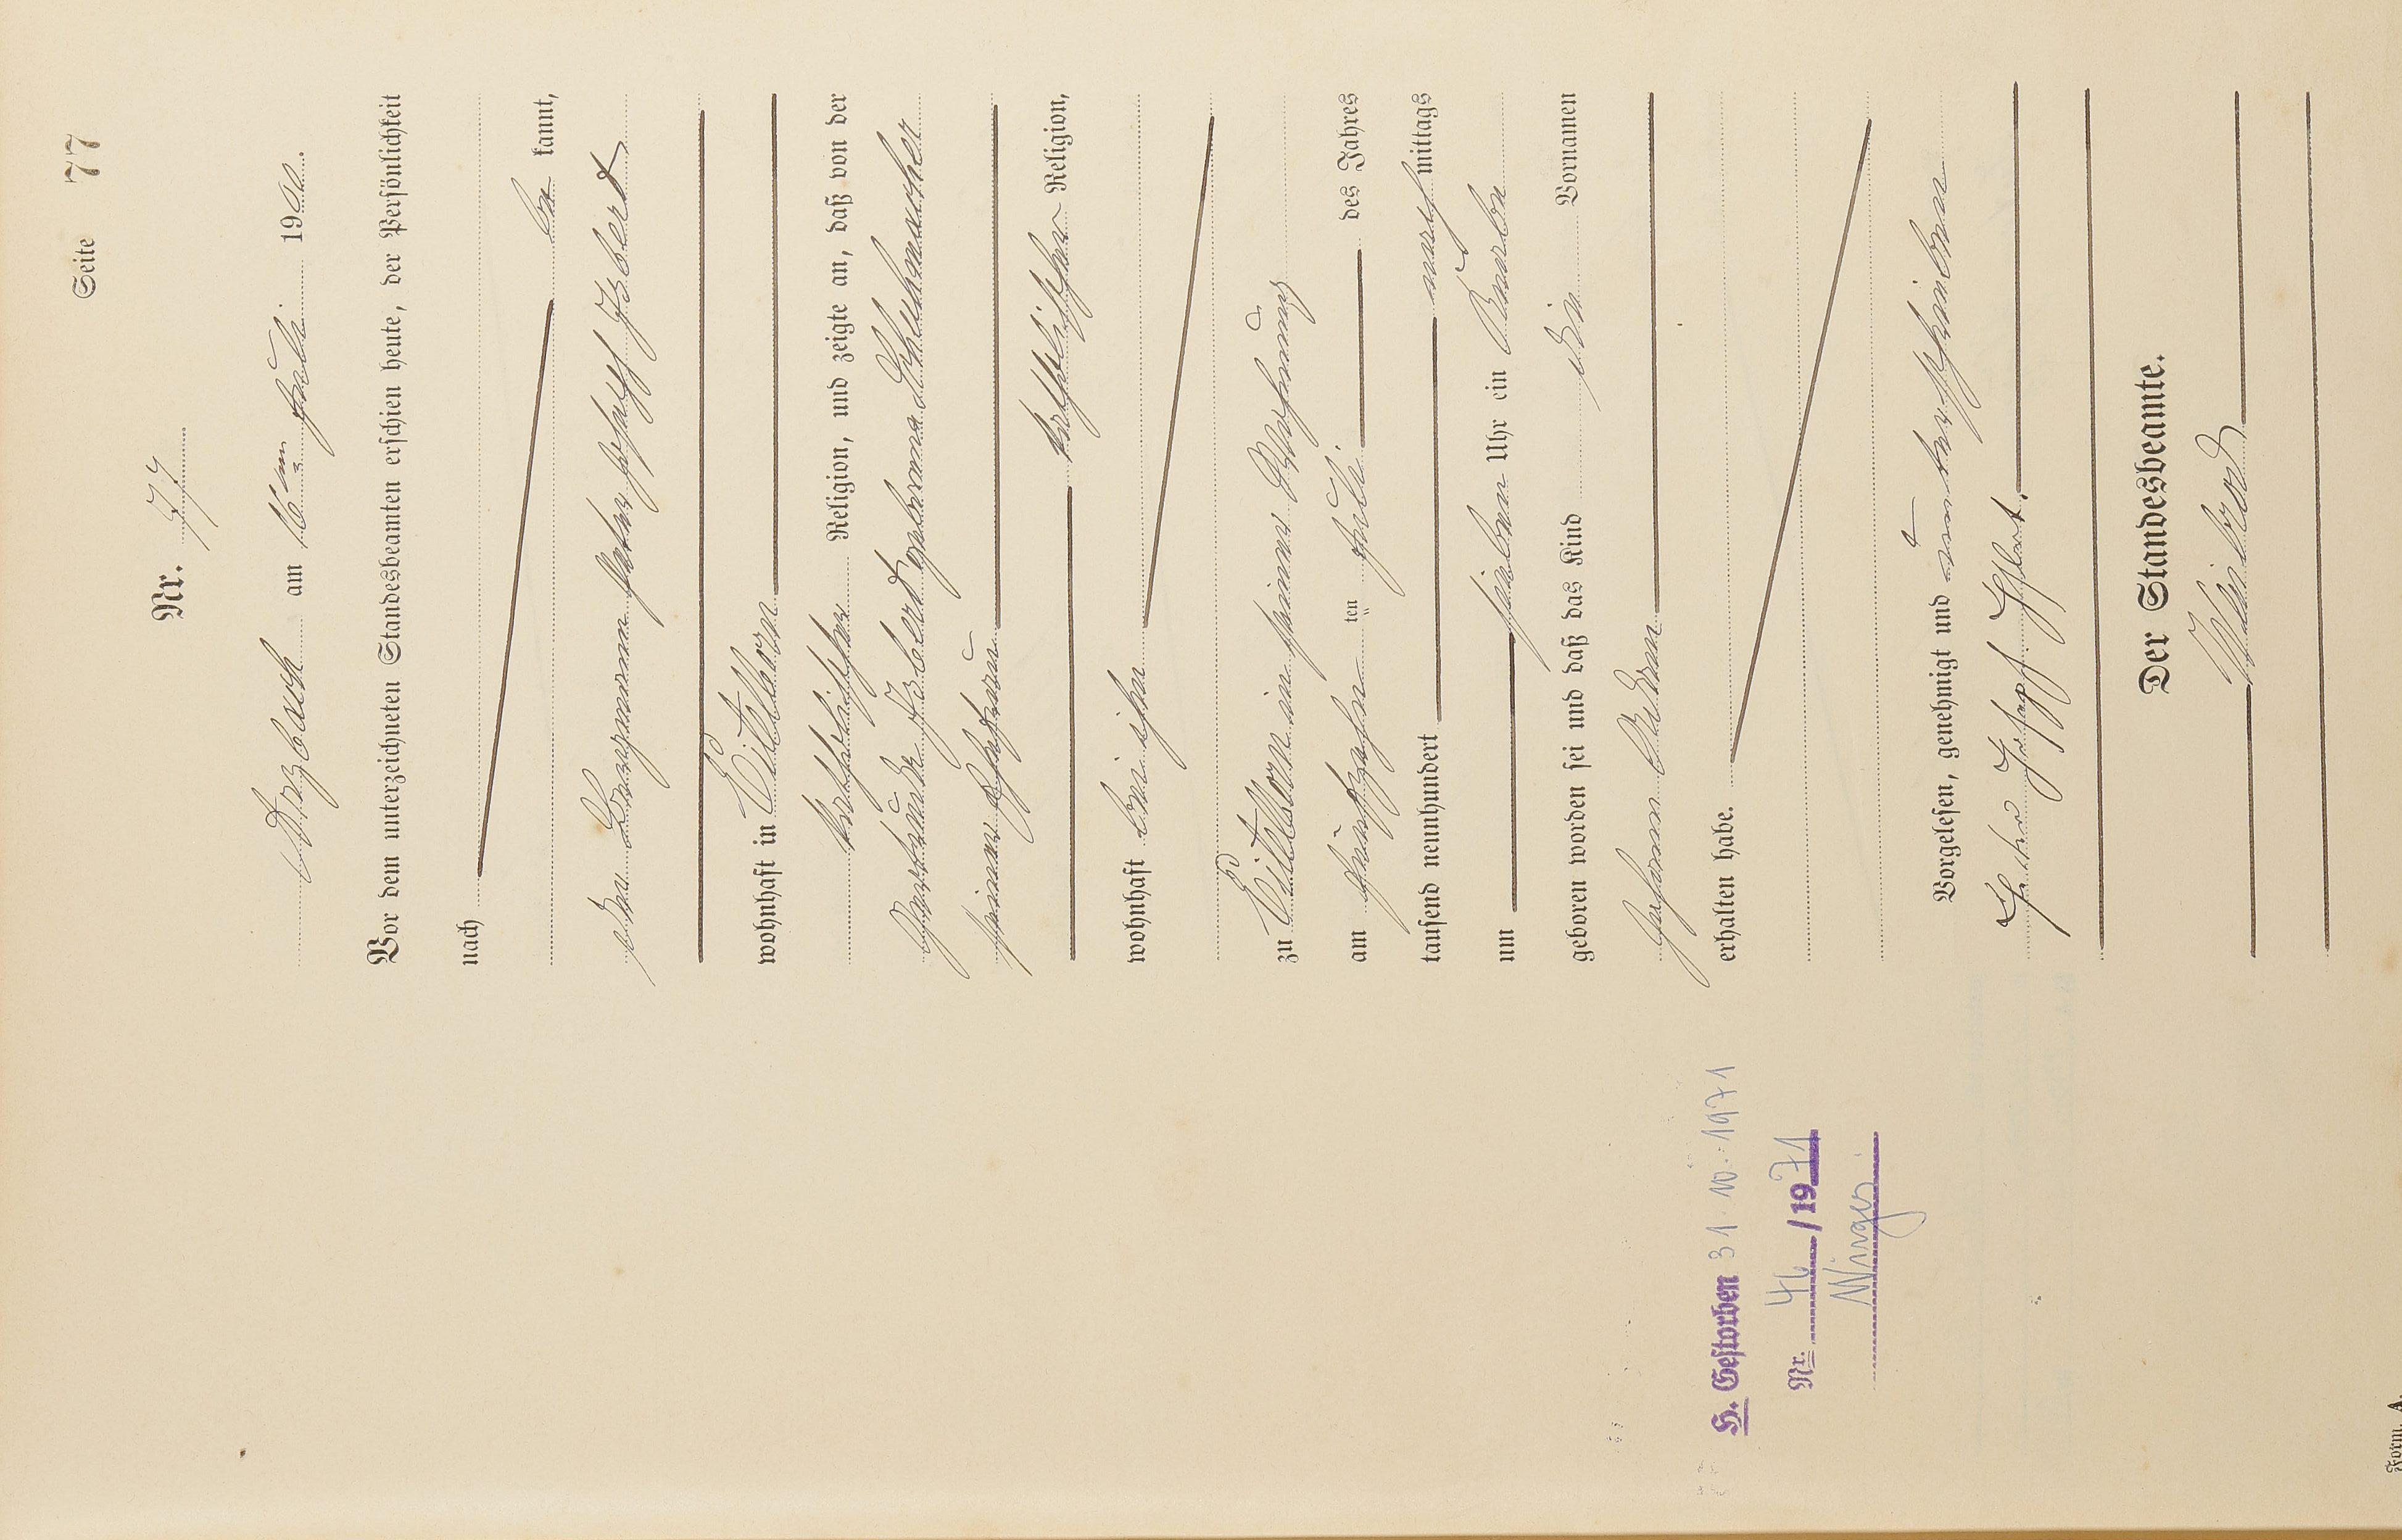 Seite 77
Nr. 77
Wirzbach am 16ten Juli 1900.
Vor dem unterzeichneten Standesbeamten erschien heute, der Persönlichkeit
nach
be kannt,
der Bergmann Peter Joseph Isbert
wohnhaft in Eitelborn
katholischer Religion, und zeigte an, daß von der
Gertrude Isbert geborene Schuhmacher
seiner Ehefrau
katholischer Religion,
wohnhaft bei ihm
zu Eitelborn in seiner Wohnung
am fünfzehnten Juli des Jahres
tausend neunhundert nachmittags
um sieben Uhr ein Knabe
geboren worden sei und daß das Kind die Vornamen
Johann
erhalten habe.
Vorgelesen, genehmigt und unterschrieben
Peter Josepf Isbert.
Der Standesbeamte.
H. Gestorben 31.10.1971
Nr. 46/1971
Form. A.